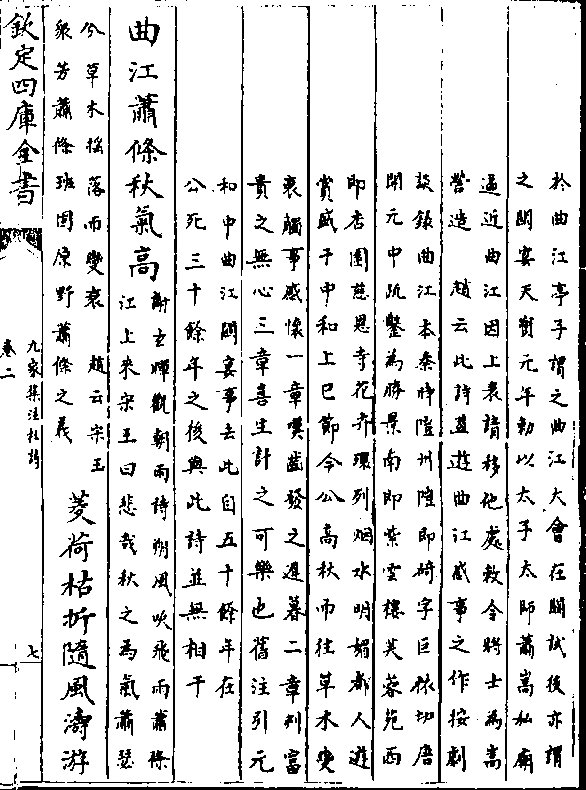 於曲江亭子謂之曲江大會在關試後亦謂
之關宴天寶元年勅以太子太師蕭嵩私廟
逼近曲江因上表請移他處敕令將士為嵩
營造 趙云此詩蓋遊曲江感事之作按劇
談錄曲江本秦時隑州隑即碕字巨依切唐
開元中疏鑿為勝景南即紫雲樓芙蓉苑西
即杏園慈恩寺花卉環列烟水明媚都人遊
賞盛于中和上巳節今公高秋而往草木變
衰觸事感懷一章嘆齒發之遲暮二章列富
貴之無心三章喜生計之可樂也舊注引元
和中曲江關宴事去此自五十餘年在
公死三十餘年之後與此詩並無相干
曲江蕭條秋氣高
謝玄暉觀朝雨詩朔風吹飛雨蕭條
江上來宋玉曰悲哉秋之為氣蕭瑟
兮草木搖落而變衰 趙云宋玉
衆芳蕭條班固原野蕭條之義
菱荷枯折隨風濤游
欽定四庫全書
九家集注杜詩
卷二
七